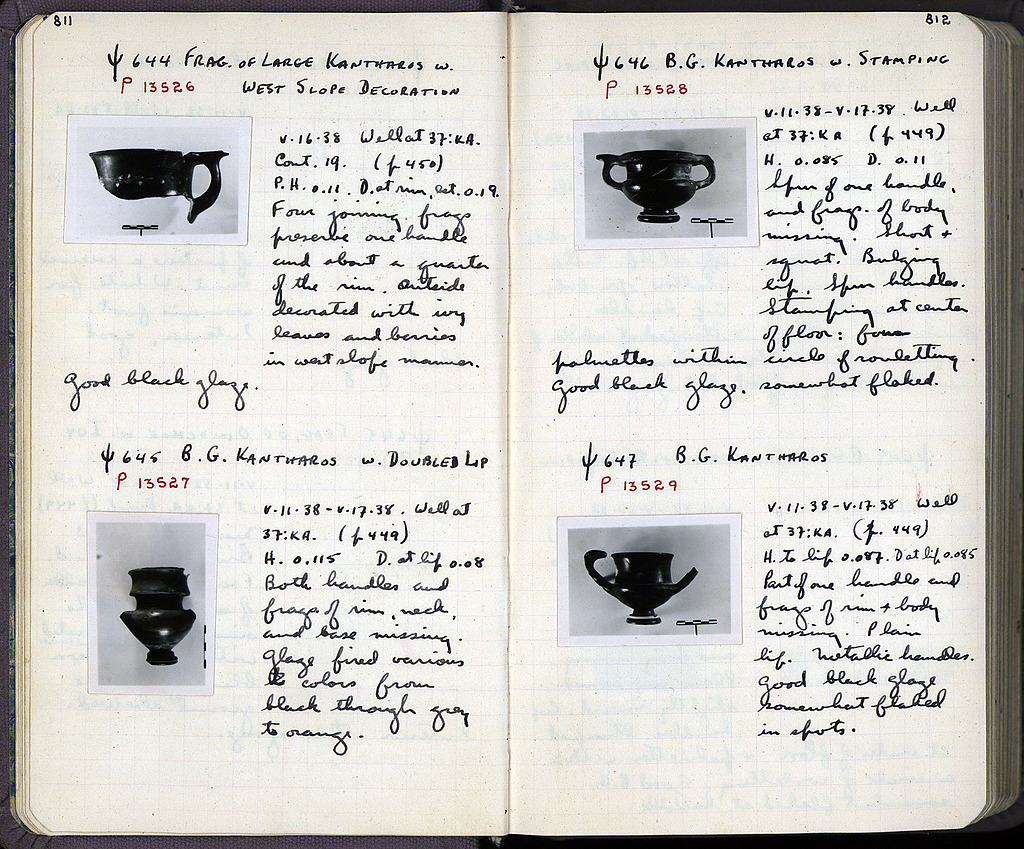 811
Ψ 644 FRAG. OF LARGE KANTHAROS W.
P 13526 WEST SLOPE DECORATION
V·16·38 Well at 37:KA.
Cont. 19. (p 450)
P.H. 0.11. D. at rim, est. 0.19.
Four joining frags
preserve one handle
and about a quarter
of the rim. Outside
decorated with ivy
leaves and berries
in west slope manner.
Good black glaze.
Ψ 645 B.G. KANTHAROS W. DOUBLED LIP
P 13527
V·11·38–V·17·38. Well at
37:KA. (p 449)
H. 0.115 D. at lip 0.08
Both handles and
frags of rim, neck,
and base missing.
Glaze fired various
colors from
black through grey
to orange.
812
Ψ 646 B.G. KANTHAROS W. STAMPING
P 13528
V·11·38–V·17·38. Well
at 37:KA (p 449)
H. 0.085 D. 0.11
Spur of one handle,
and frags. of body
missing. Short +
squat. Bulging
lip. Spur handles.
Stamping at center
of floor: four
palmettes within circle of rouletting.
Good black glaze. somewhat flaked.
Ψ 647 B.G. KANTHAROS
P 13529
V·11·38–V·17·38 Well
at 37:KA. (p. 449)
H. to lip 0.087. D at lip 0.085
Part of one handle and
frags of rim + body
missing. Plain
lip. Metallic handles.
Good black glaze
somewhat flaked
in spots.